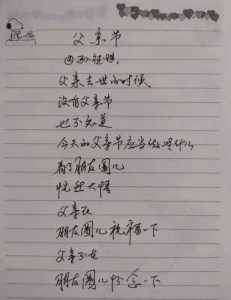 父亲节
父亲去世的时候
没有父亲节
也不知道
今天的父亲节应当做些什么
看了朋友圈儿
恍然大悟
父亲在
朋友圈儿祝福一下
父亲不在
朋友圈儿怀念一下